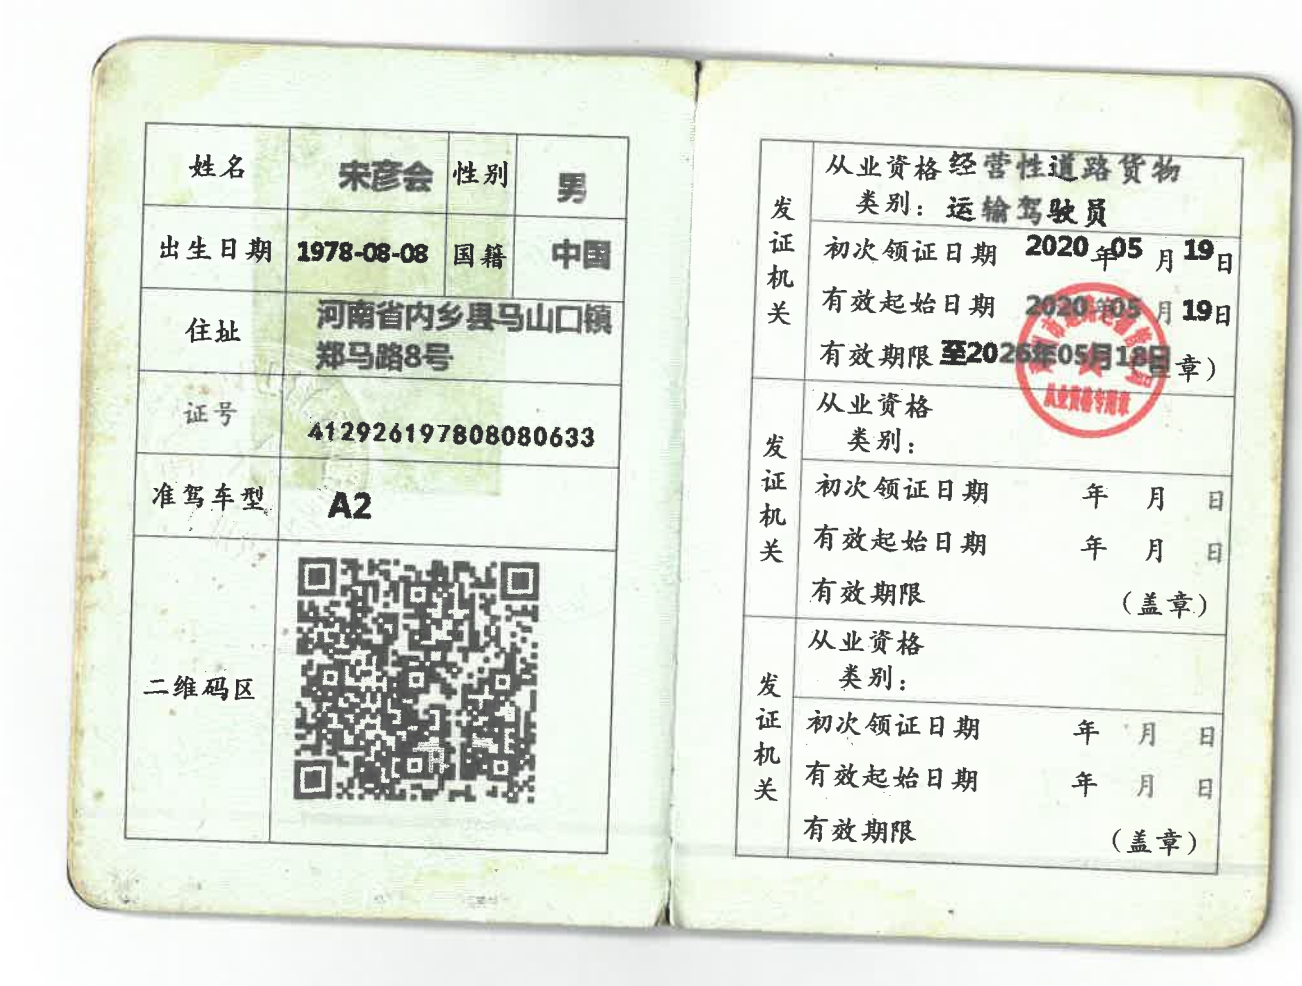 姓名 宋彦会 性别 男
出生日期 1978-08-08 国籍 中国
住址 河南省内乡县马山口镇
郑马路8号
证号 412926197808080633
准驾车型 A2
二维码区
发证机关
从业资格 经营性道路货物
类别: 运输驾驶员
初次领证日期 2020年05月19日
有效起始日期 2020年05月19日
有效期限 至2026年05月18日
章)
从业资格专用章
发证机关
从业资格
类别:
初次领证日期 年 月 日
有效起始日期 年 月 日
有效期限 (盖章)
发证机关
从业资格
类别:
初次领证日期 年 月 日
有效起始日期 年 月 日
有效期限 (盖章)